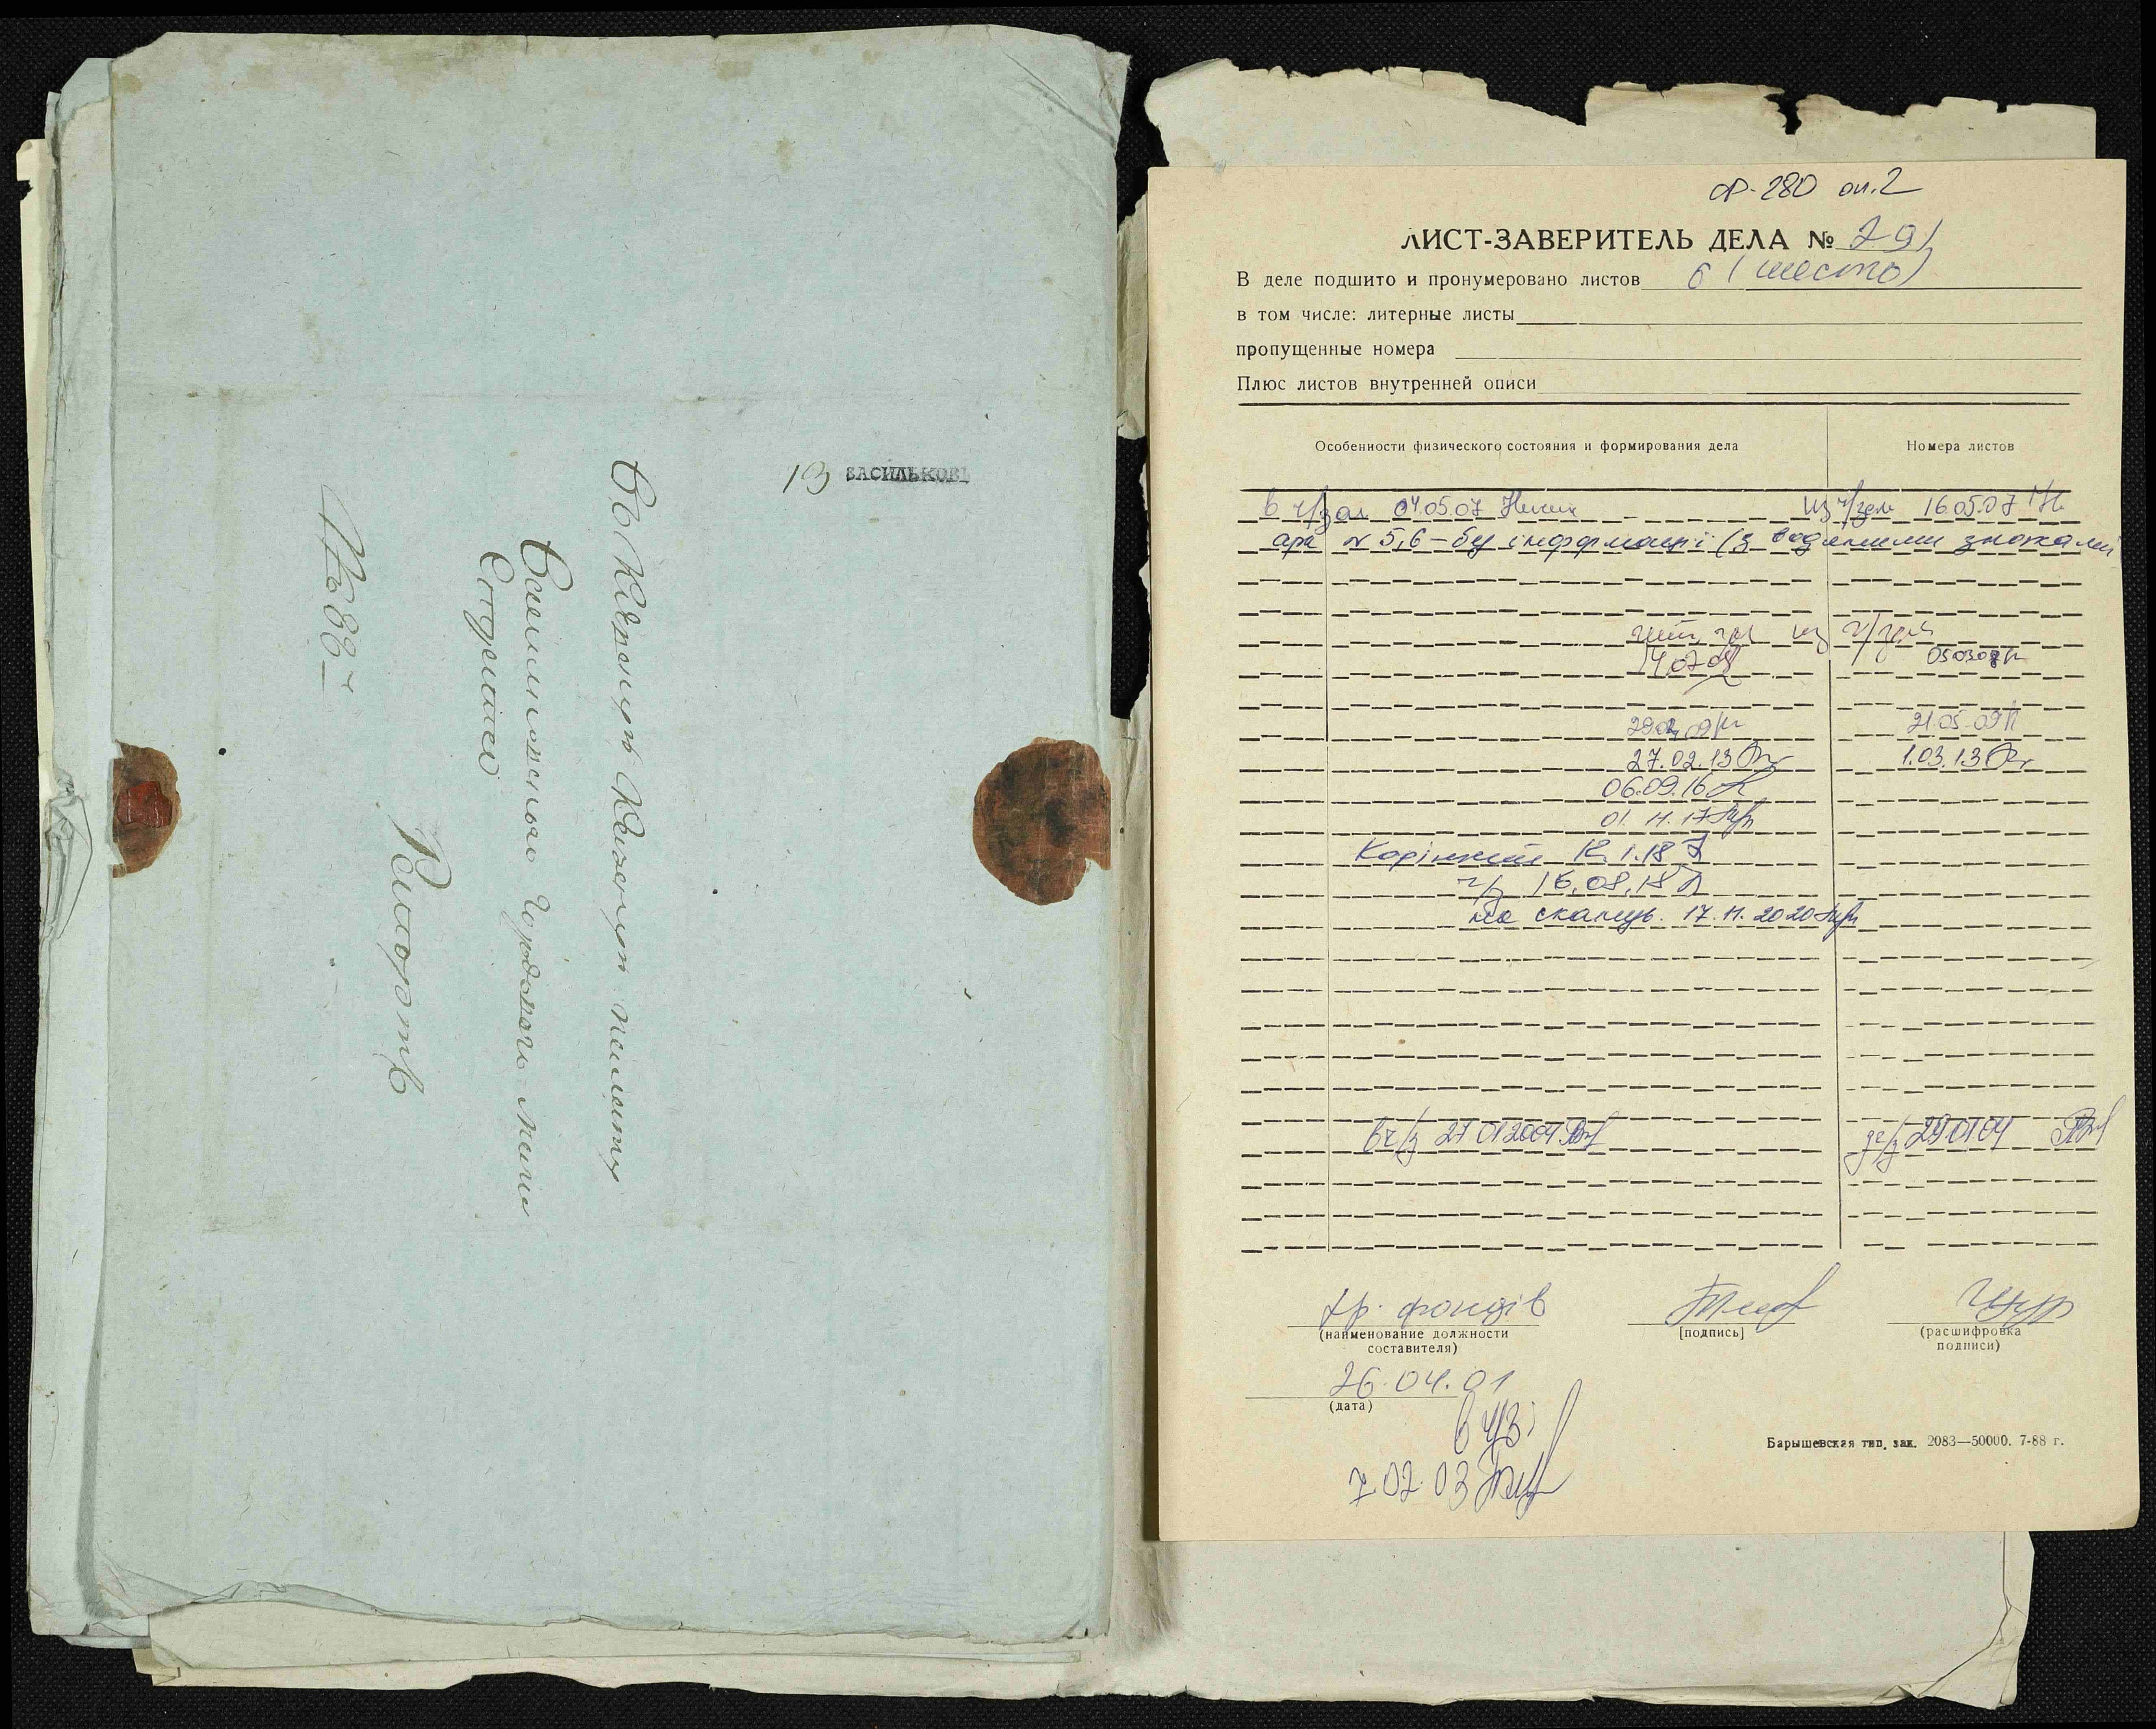 13 ВАСИЛЬКОВЪ
Въ Кіевскую Казенную палату
Васильковскаго Городоваго Маги
Страта
Рапортъ
№ 33
Ф-280 оп.2
ЛИСТ-ЗАВЕРИТЕЛЬ ДЕЛА № 291
В деле подшито и пронумеровано листов 6 (шесть)
в том числе: литерные листы
пропущенные номера
Плюс листов внутренней описи
Особенности физического состояния и формирования дела
Номера листов
в ч/зал 04.05.07 из ч/зала 16.05.07
арк № 5,6 – без інформації (з водяними знаками
чит. зал из ч/зала
14.07.08 05.03.08
29.04.09 21.05.09
27.02.13 1.03.13
06.09.16
01.11.17
12.1.18
ч/з 16.08.18
на сканув. 17.11.2020
в ч/з 27 01 2004 з ч/з 29 01 04
хр. фондів
(наименование должности составителя)
[подпись]
(расшифровка подписи)
26.04.01
(дата)
в ч/з
7.02.03
Барышевская тип. зак. 2083—50000. 7-88 г.